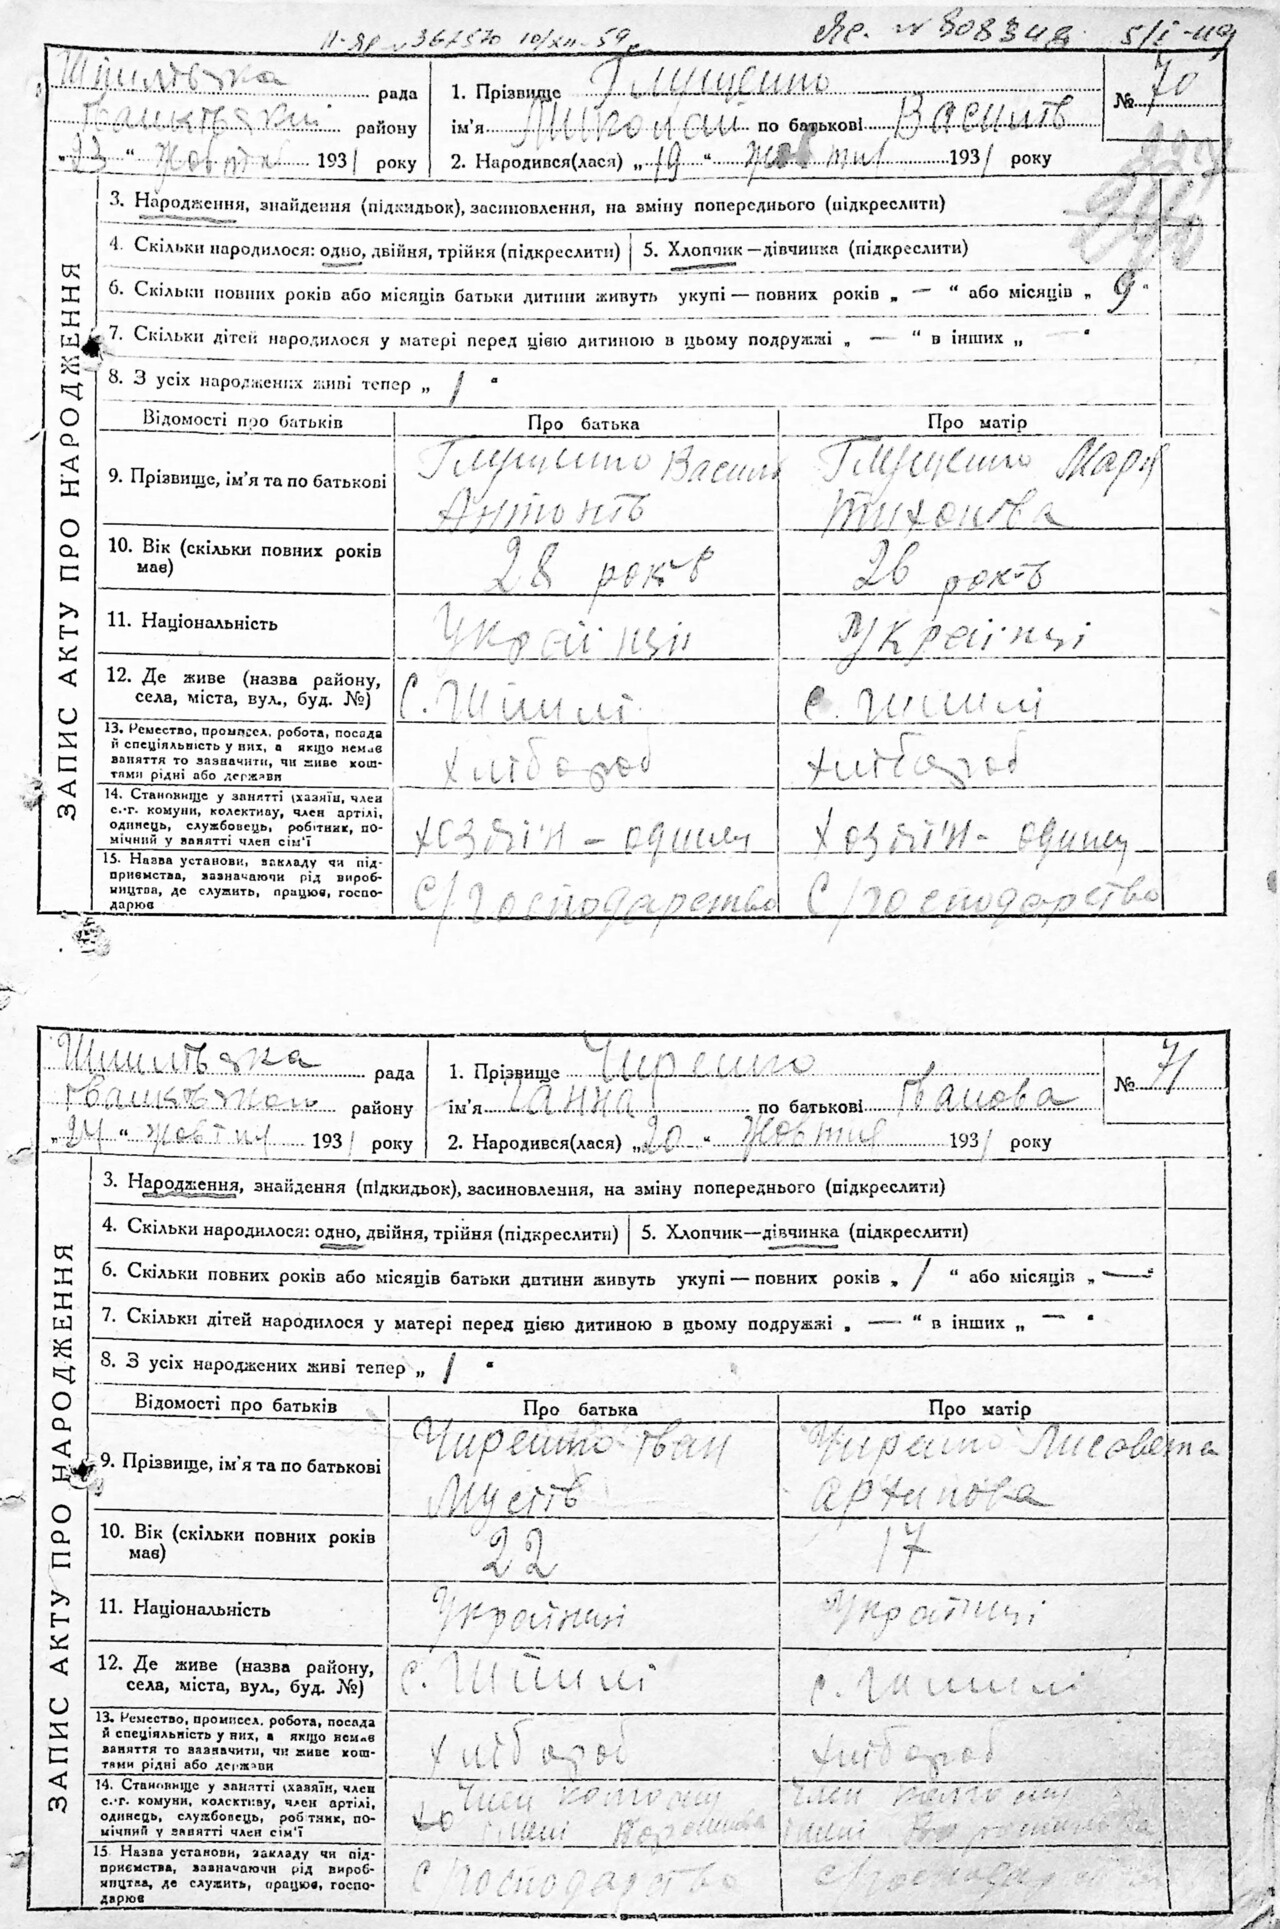 II-ЯР № 367570 10/XII-59 р.
№ 308348 5/I-49
Шпилівська рада
Іванківський району
„23“ жовтня 1931 року
1. Прізвище Глущенко
ім'я Миколай по батькові Василів
2. Народився(лася) „19“ жовтня 1931 року
№ 70
ЗАПИС АКТУ ПРО НАРОДЖЕННЯ
3. Народження, знайдення (підкидьок), засиновлення, на зміну попереднього (підкреслити)
4. Скільки народилося: одно, двійня, трійня (підкреслити) 5. Хлопчик—дівчинка (підкреслити)
6. Скільки повних років або місяців батьки дитини живуть укупі — повних років „ — “ або місяців „ 9 “
7. Скільки дітей народилося у матері перед цією дитиною в цьому подружжі „ — “ в інших „ — “
8. З усіх народжених живі тепер „ 1 “
Відомості про батьків Про батька Про матір
9. Прізвище, ім'я та по батькові Глущенко Василь Глущенко Марія
Антонів Тихонова
10. Вік (скільки повних років має) 28 років 26 років
11. Національність Українці Українці
12. Де живе (назва району, села, міста, вул., буд. №) с. Шпилі с. Шпилі
13. Ремество, промисел, робота, посада
й спеціяльність у них, а якщо немає
заняття то зазначити, чи живе кош-
тами рідні або держави
хлібороб хлібороб
14. Становище у занятті (хазяїн, член
с.-г. комуни, колективу, член артілі,
одинець, службовець, робітник, по-
мічний у занятті член сім'ї
хозяїн - одинец хозяїн - одинец
15. Назва установи, закладу чи під-
приємства, зазначаючи рід вироб-
ництва, де служить, працює, госпо-
дарює
С/господарство С/господарство
Шпилівська рада
Іванківського району
„24“ жовтня 1931 року
1. Прізвище Чирейко
ім'я Ганна по батькові Іванова
2. Народився(лася) „20“ жовтня 1931 року
№ 71
ЗАПИС АКТУ ПРО НАРОДЖЕННЯ
3. Народження, знайдення (підкидьок), засиновлення, на зміну попереднього (підкреслити)
4. Скільки народилося: одно, двійня, трійня (підкреслити) 5. Хлопчик—дівчинка (підкреслити)
6. Скільки повних років або місяців батьки дитини живуть укупі — повних років „ 1 “ або місяців „ — “
7. Скільки дітей народилося у матері перед цією дитиною в цьому подружжі „ — “ в інших „ — “
8. З усіх народжених живі тепер „ 1 “
Відомості про батьків Про батька Про матір
9. Прізвище, ім'я та по батькові Чирейко Іван Чирейко Лисавета
Мусіїв Архипова
10. Вік (скільки повних років має) 22 17
11. Національність Українці Українці
12. Де живе (назва району, села, міста, вул., буд. №) с. Шпилі с. Шпилі
13. Ремество, промисел, робота, посада
й спеціяльність у них, а якщо немає
заняття то зазначити, чи живе кош-
тами рідні або держави
хлібороб хлібороб
14. Становище у занятті (хазяїн, член
с.-г. комуни, колективу, член артілі,
одинець, службовець, робітник, по-
мічний у занятті член сім'ї
Член колгоспу Член колгоспу
імені Ворошилова імені Ворошилова
15. Назва установи, закладу чи під-
приємства, зазначаючи рід вироб-
ництва, де служить, працює, госпо-
дарює
С/господарство С/господарство